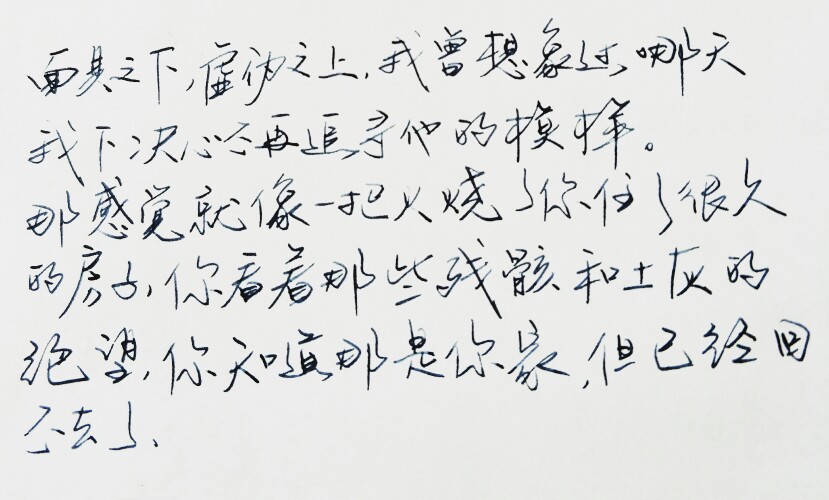 面具之下,虚伪之上,我曾想象过,哪天
我下决心不再追寻他的模样。
那感觉就像一把火烧了你住了很久
的房子,你看着那些残骸和土灰的
绝望,你知道那是你家,但已经回
不去了.